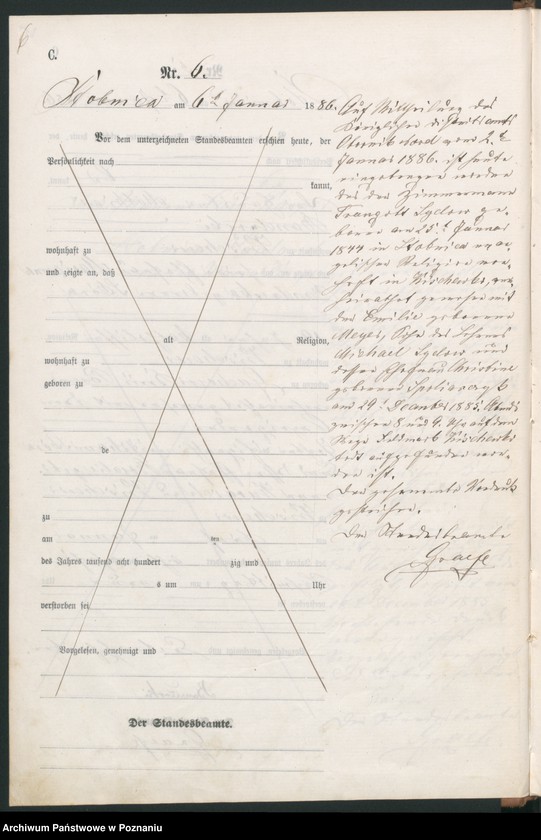 6
C.
Nr. 6.
Stobnica am 6t Januar 1886.
Vor dem unterzeichneten Standesbeamten erschien heute, der
Persönlichkeit nach
kannt,
wohnhaft zu
und zeigte an, daß
alt Religion,
wohnhaft zu
geboren zu
de
zu
am ten
des Jahres tausend acht hundert zig und
s um Uhr
verstorben sei
Vorgelesen, genehmigt und
Der Standesbeamte.
Auf Mittheilung des
Königlichen Distriktsamts
Obornik Nord vom 2. t
Januar 1886. ist heute
eingetragen worden
daß der Zimmermann
ge-
boren am 25. t Januar
1844 in Stobnica evan-
gelischer Religion
in ver-
heirathet gewesen mit
der Emilie geborene
Meyer, Sohn des
Michael und
dessen Ehefrau Christine
geborene
am 29. t 1885. Abends
zwischen 8 und 9 Uhr auf dem
Wege Feldmark
todt aufgefunden wor-
den ist.
Der gesammte Vordruck
gestrichen.
Der Standesbeamte
Archiwum Państwowe w Poznaniu